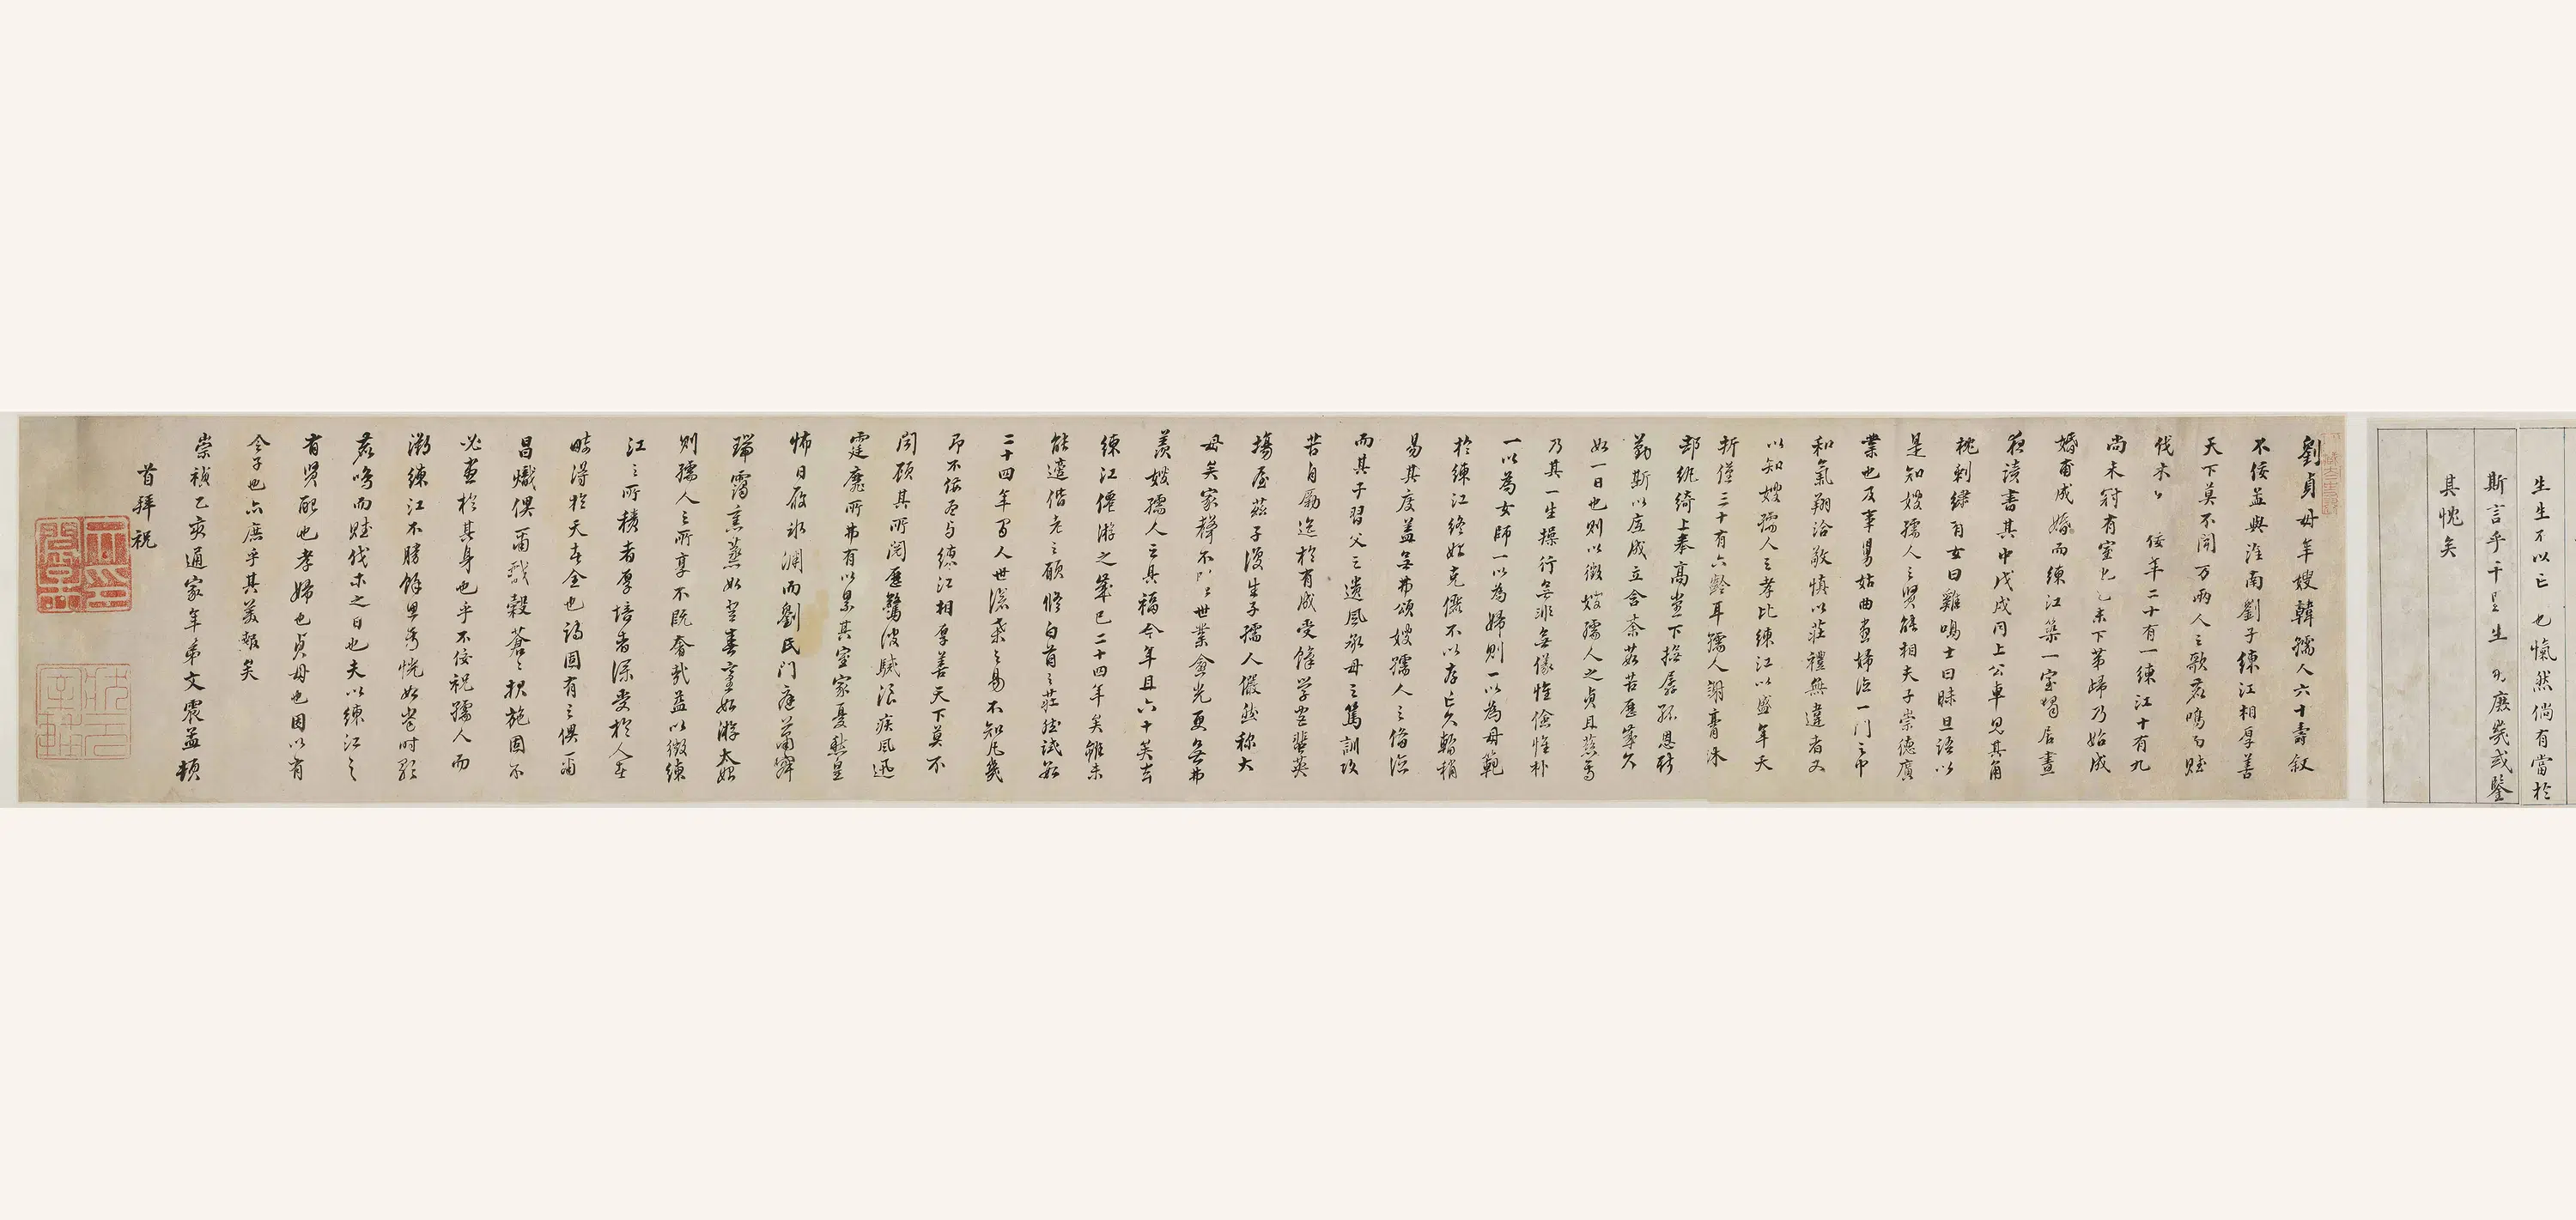 生生不以亡也愾然倘有當於
斯言乎于是生死廢幾或鑒
其愧矣
劉貞母年嫂韓孺人六十壽叙
不佞孟與淮南劉子練江相厚善
天下莫不聞乃兩人之歌鹿鳴而賦
伐木也佞年二十有一練江十有九
尚未冠有室也乙未下第歸乃始成
婚甫成婚而練江築一室獨居晝
夜讀書其中戊戌同上公車見其角
枕刺繡有女曰雞鳴士曰昧旦語以
是知嫂孺人之賢能相夫子崇德廣
業也及事舅姑曲盡婦德一門之中
和氣翔洽敬慎以莊禮無違者又
以知嫂孺人之孝比練江以盛年夭
折僅三十有六齡耳孺人謝膏沐
却紈綺上奉高堂下撫孱孤恩斯
勤斯以底成立含荼茹苦歷年久
如一日也則以徵嫂孺人之貞且慈焉
乃其一生操行無非無儀惟儉惟朴
一以為女師一以為婦則一以為母範
於練江終始克儷不以存亡久暫稍
易其度蓋無弗頌嫂孺人之偹德
而其子習父之遺風承母之篤訓攻
苦自勵迄於有成受餼学宫蜚英
塲屋茲子復生子孺人儼然称大
母矣家聲不隕世業愈光更無弗
羨嫂孺人之具福今年且六十矣去
練江僊游之年已二十四年矣雖未
能遂偕老之願脩白首之莊然試敘
二十四年間人世滄桑之易不知凡幾
即不佞孟与練江相厚善天下莫不
聞顧其所閱歷驚波駴浪疾風迅
霆靡所弗有以累其室家憂愁皇
怖日履氷淵而劉氏門庭蕭寂
瑞靄熏蒸如登春臺如游太始
則孺人之所享不既奢哉益以徵練
江之所積者厚培者深受於人其
畸得於天其全也詩固有之俱爾
昌熾俱爾戩穀蒼之報施固不
必盡於其身也乎不佞祝孺人而
溯練江不勝餘思焉恍如當時歌
鹿鳴而賦伐木之日也夫以練江之
有賢配也孝婦也貞母也因以有
令子也亦庶乎其差報矣
崇禎乙亥通家年弟文震孟頓
首拜祝